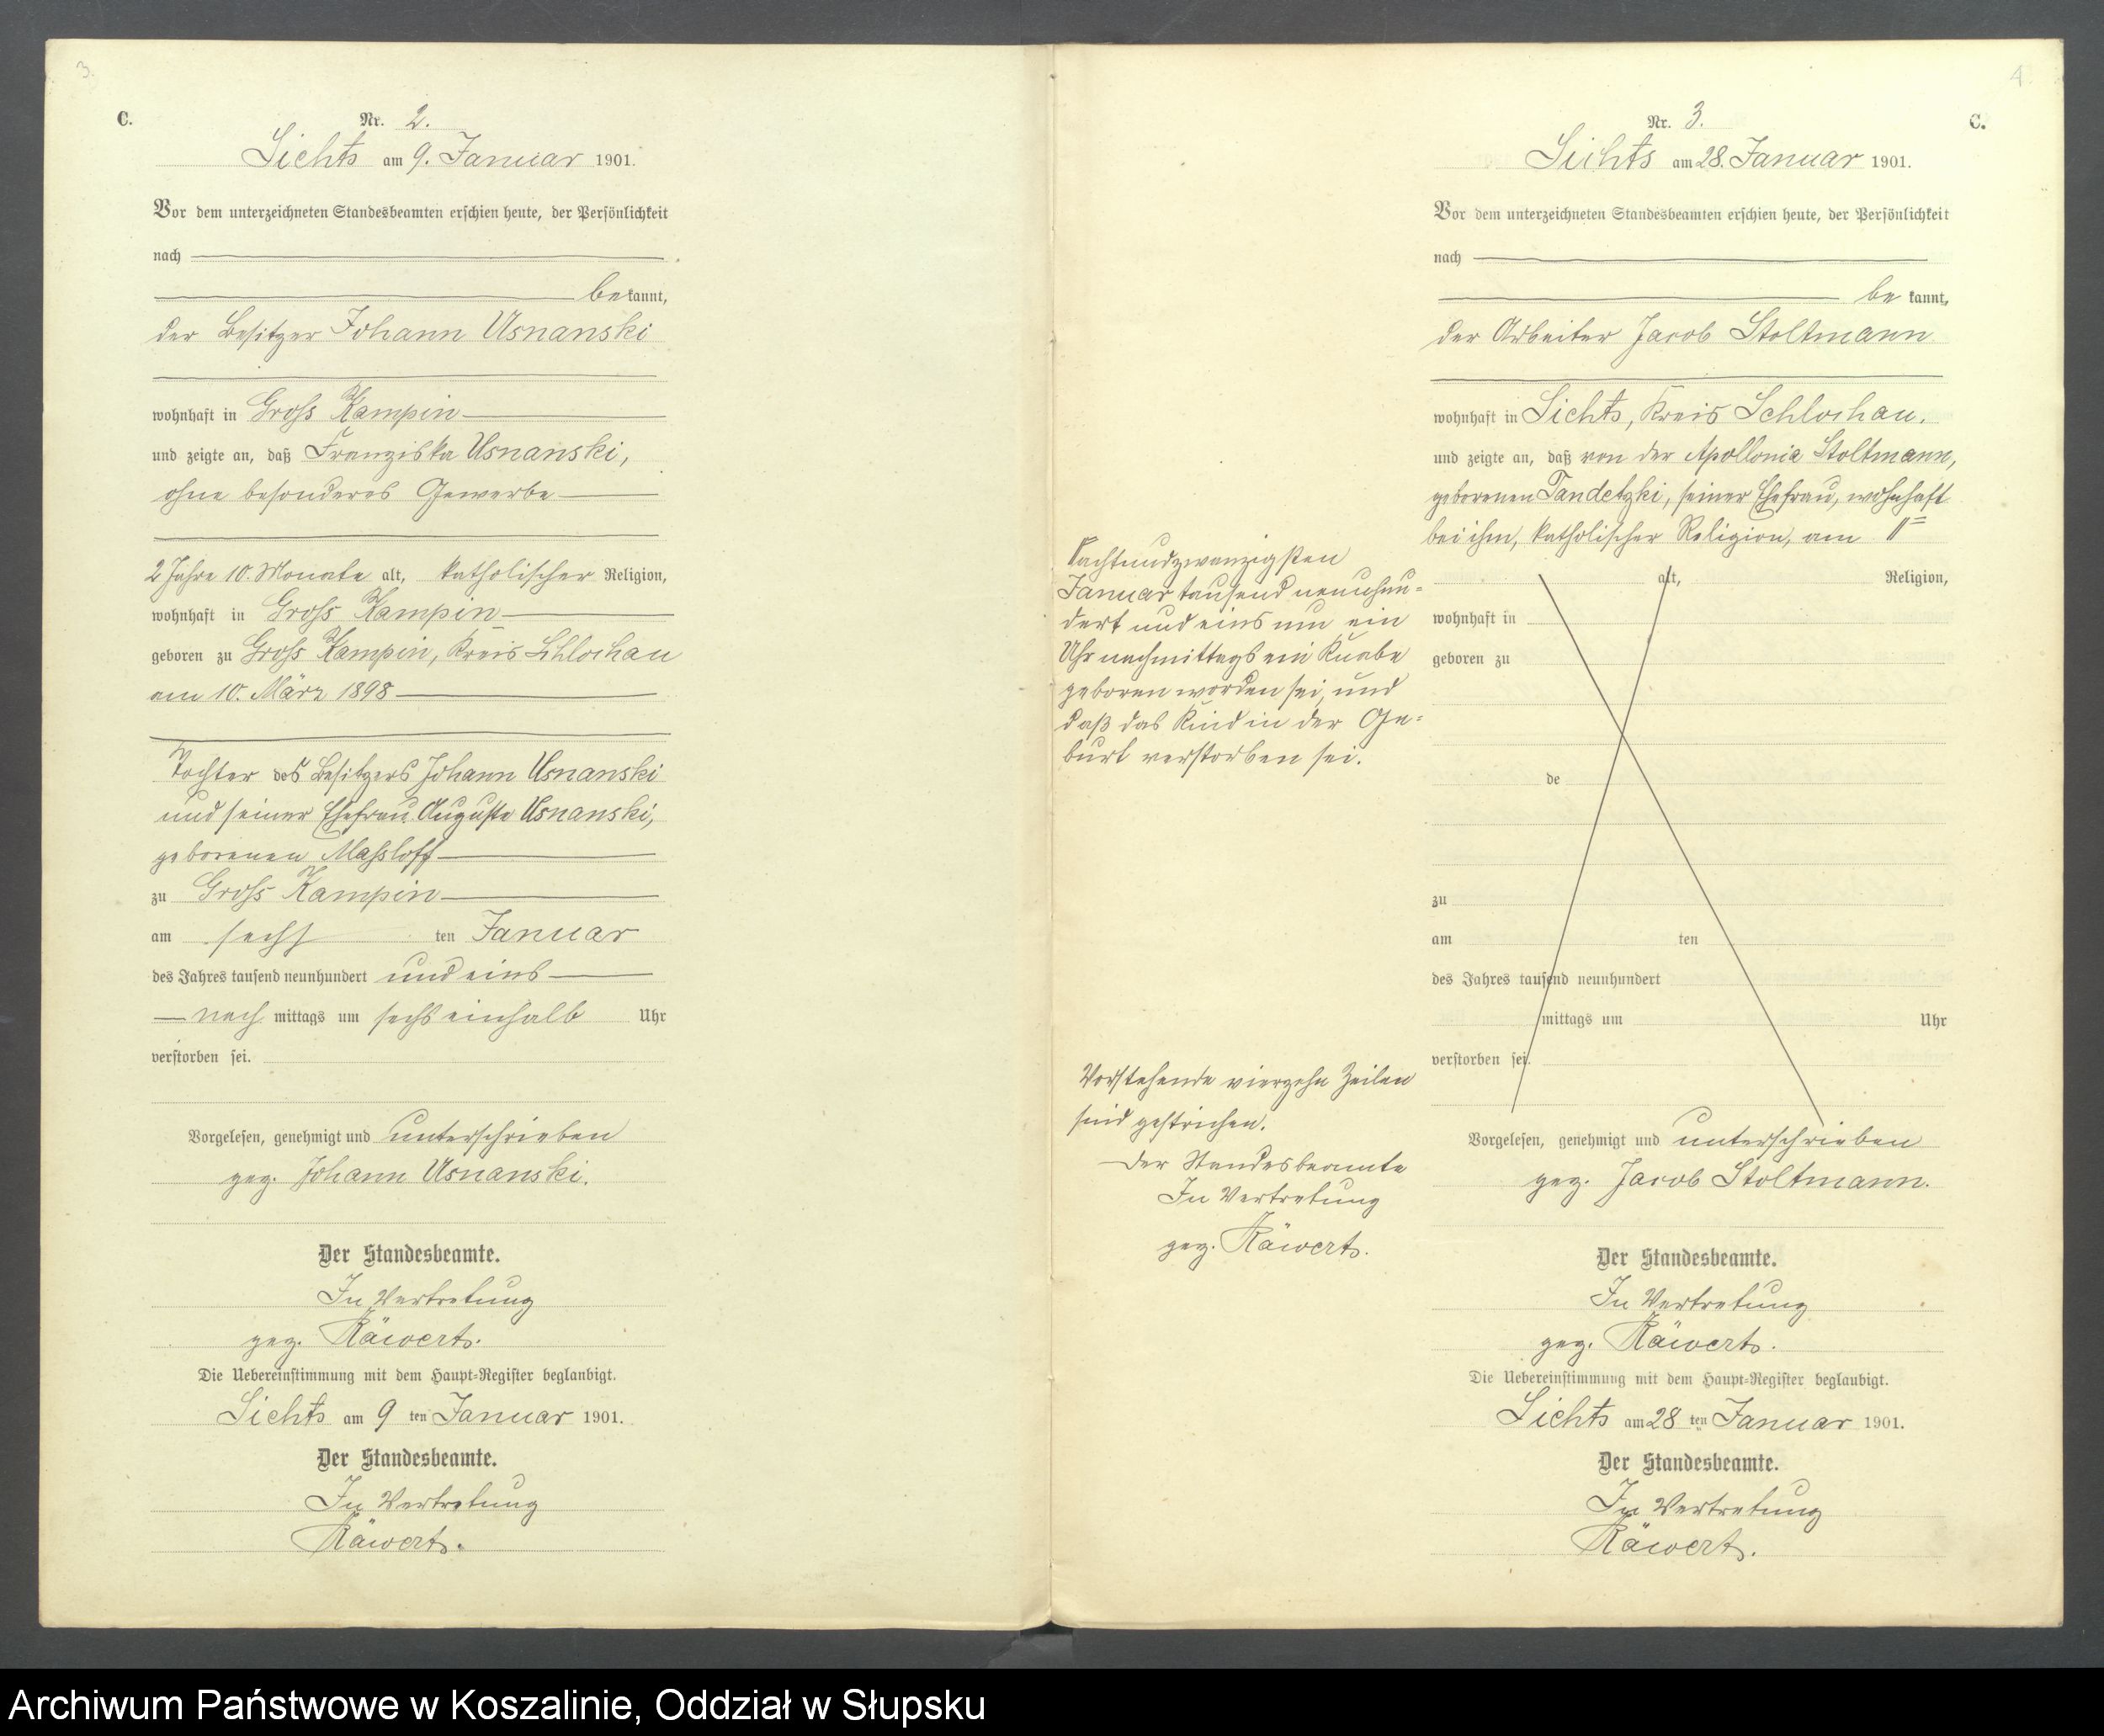 3.
C.
Nr. 2.
Lichts am 9. Januar 1901.
Vor dem unterzeichneten Standesbeamten erschien heute, der Persönlichkeit
nach
bekannt,
der Besitzer Johann Usnanski
wohnhaft in Gross Kampin
und zeigte an, daß Franziska Usnanski,
ohne besonderes Gewerbe
2 Jahre 10. Monate alt, katholischer Religion,
wohnhaft in Gross Kampin
geboren zu Gross Kampin, Kreis Schlochau
am 10. März 1898
Tochter des Besitzers Johann Usnanski
und seiner Ehefrau Auguste Usnanski,
geborenen Massloff
zu Gross Kampin
am sechsten Januar
des Jahres tausend neunhundert und eins
nachmittags um sechs einhalb Uhr
verstorben sei.
Vorgelesen, genehmigt und unterschrieben
gez. Johann Usnanski.
Der Standesbeamte.
In Vertretung
gez. Räwert.
Die Uebereinstimmung mit dem Haupt-Register beglaubigt.
Lichts am 9 ten Januar 1901.
Der Standesbeamte.
In Vertretung
Räwert.
4.
Nr. 3.
C.
Lichts am 28. Januar 1901.
Vor dem unterzeichneten Standesbeamten erschien heute, der Persönlichkeit
nach
bekannt,
der Arbeiter Jacob Stoltmann
wohnhaft in Lichts, Kreis Schlochau,
und zeigte an, daß von der Apollonia Stoltmann,
geborenen Tandetzki, seiner Ehefrau, wohnhaft
bei ihm, katholischer Religion, am
achtundzwanzigsten
Januar tausend neunhun-
dert und eins um ein
Uhr nachmittags ein Knabe
geboren worden sei, und
daß das Kind in der Ge-
burt verstorben sei.
alt, Religion,
wohnhaft in
geboren zu
de
zu
am ten
des Jahres tausend neunhundert
mittags um Uhr
verstorben sei.
Vorstehende vierzehn Zeilen
sind gestrichen.
Der Standesbeamte
In Vertretung
gez. Räwert.
Vorgelesen, genehmigt und unterschrieben
gez. Jacob Stoltmann.
Der Standesbeamte.
In Vertretung
gez. Räwert.
Die Uebereinstimmung mit dem Haupt-Register beglaubigt.
Lichts am 28 ten Januar 1901.
Der Standesbeamte.
In Vertretung
Räwert.
Archiwum Państwowe w Koszalinie, Oddział w Słupsku